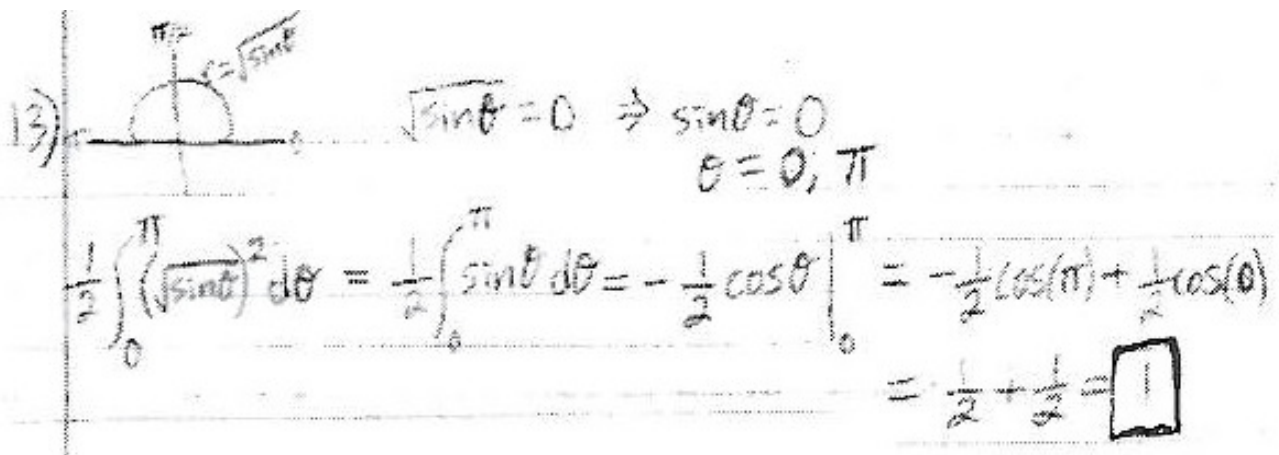 π/2
r=√sinθ
13) √sinθ = 0 ⇒ sinθ = 0
θ = 0, π
1/2 ∫₀^π (√sinθ)² dθ = 1/2 ∫₀^π sinθ dθ = -1/2 cosθ |₀^π = -1/2 cos(π) + 1/2 cos(0)
= 1/2 + 1/2 = 1